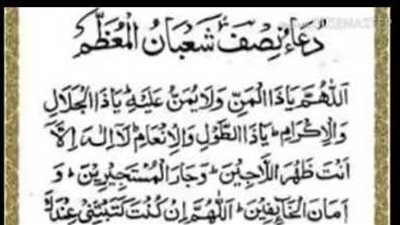 دُعَاءُ نِصْفِ شَعْبَانَ الْمُعَظَّمِ
اَللّٰهُمَّ يَاذَا الْمَنِّ وَلَا يُمَنُّ عَلَيْهِ يَاذَا الْجَلَالِ
وَالْاِكْرَامِ يَاذَا الطَّوْلِ وَالْاِنْعَامِ لَا اِلٰهَ اِلَّا
اَنْتَ ظَهْرَ اللَّاجِيْنَ وَجَارَ الْمُسْتَجِيْرِيْنَ وَ
اَمَانَ الْخَائِفِيْنَ اَللّٰهُمَّ اِنْ كُنْتَ كَتَبْتَنِيْ عِنْدَكَ